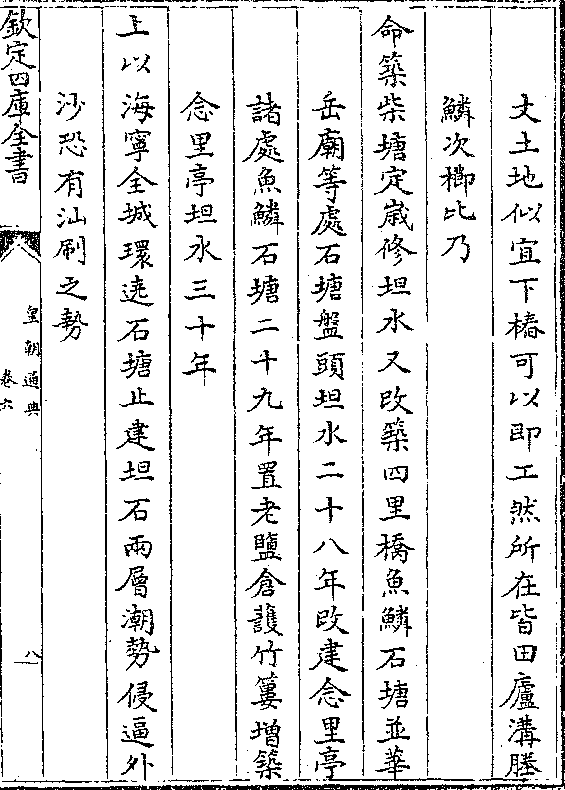 丈土地似宜下樁可以即工然所在皆田廬溝塍
鱗次櫛比乃
命築柴塘定歲修坦水又改築四里橋魚鱗石塘並華
岳廟等處石塘盤頭坦水二十八年改建念里亭
諸處魚鱗石塘二十九年置老鹽倉護竹簍增築
念里亭坦水三十年
上以海寧全城環遶石塘止建坦石兩層潮勢侵逼外
沙恐有汕刷之勢
欽定四庫全書
皇朝通典
卷六
八